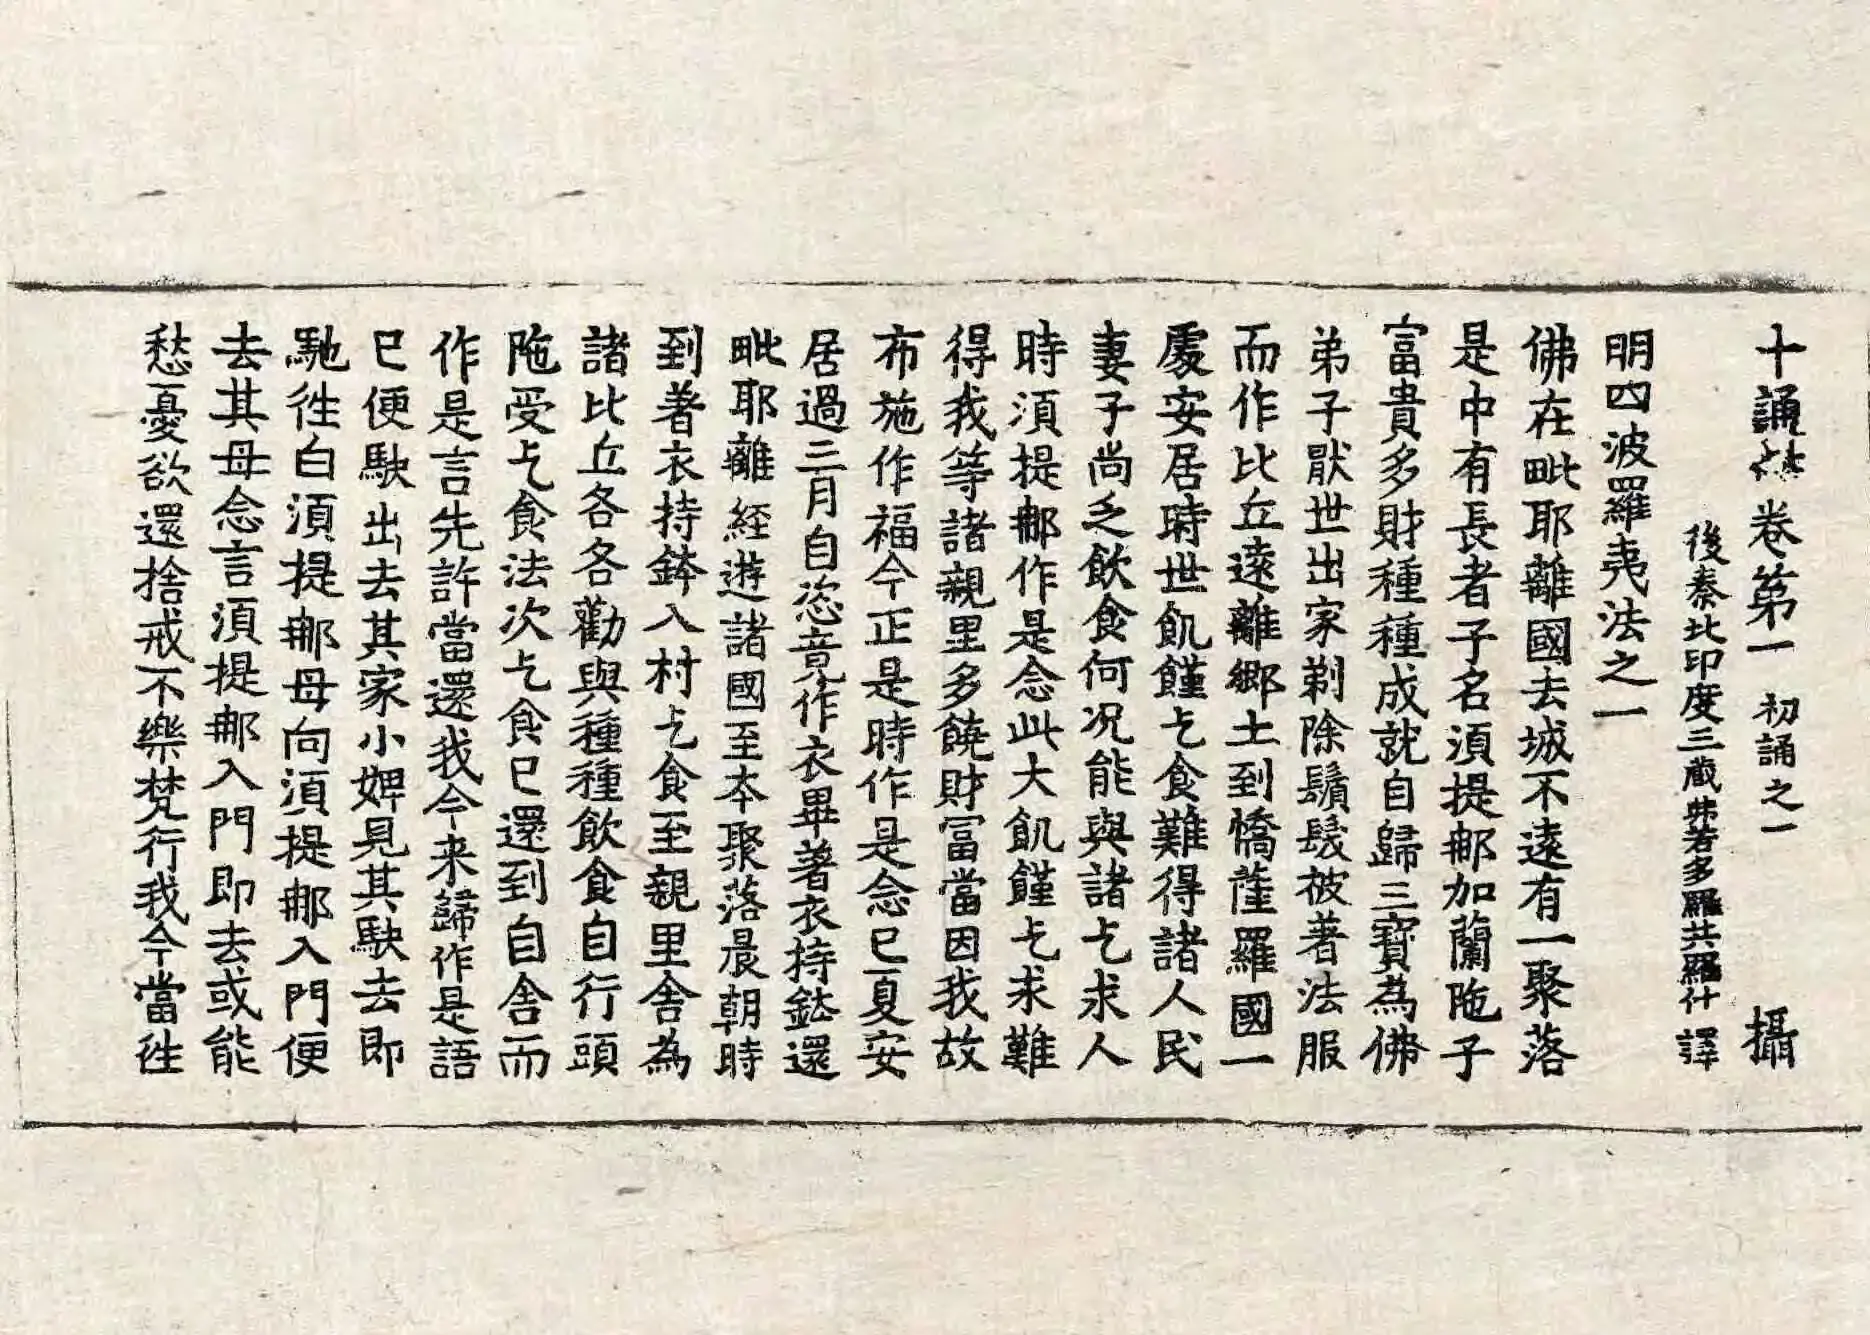 十誦律卷第一 初誦之一 攝
後秦北印度三藏弗若多羅共羅什譯
明四波羅夷法之一
佛在毗耶離國去城不遠有一聚落
是中有長者子名須提那加蘭陁子
富貴多財種種成就自歸三寶為佛
弟子厭世出家剃除鬚髮被著法服
而作比丘遠離鄉土到憍薩羅國一
處安居時世飢饉乞食難得諸人民
妻子尚乏飲食何况能與諸乞求人
時須提那作是念此大飢饉乞求難
得我等諸親里多饒財冨當因我故
布施作福今正是時作是念已夏安
居過三月自恣竟作衣畢著衣持鉢還
毗耶離經遊諸國至本聚落晨朝時
到著衣持鉢入村乞食至親里舍為
諸比丘各各勸與種種飲食自行頭
陁受乞食法次乞食已還到自舍而
作是言先許當還我今来歸作是語
已便駃出去其家小婢見其駃去即
馳徃白須提那母向須提那入門便
去其母念言須提那入門即去或能
愁憂欲還捨戒不樂梵行我今當徃